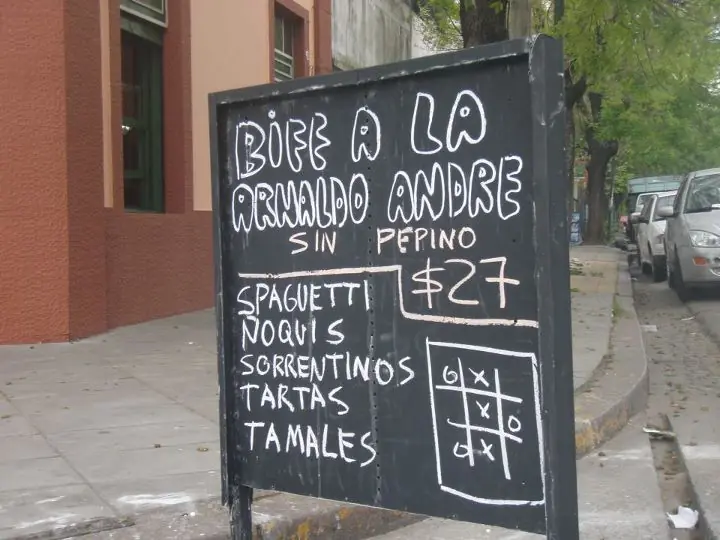 BIFE A LA
ARNALDO ANDRE
SIN PEPINO
$27
SPAGUETTI
ÑOQUIS
SORRENTINOS
TARTAS
TAMALES
O X
X O
O X